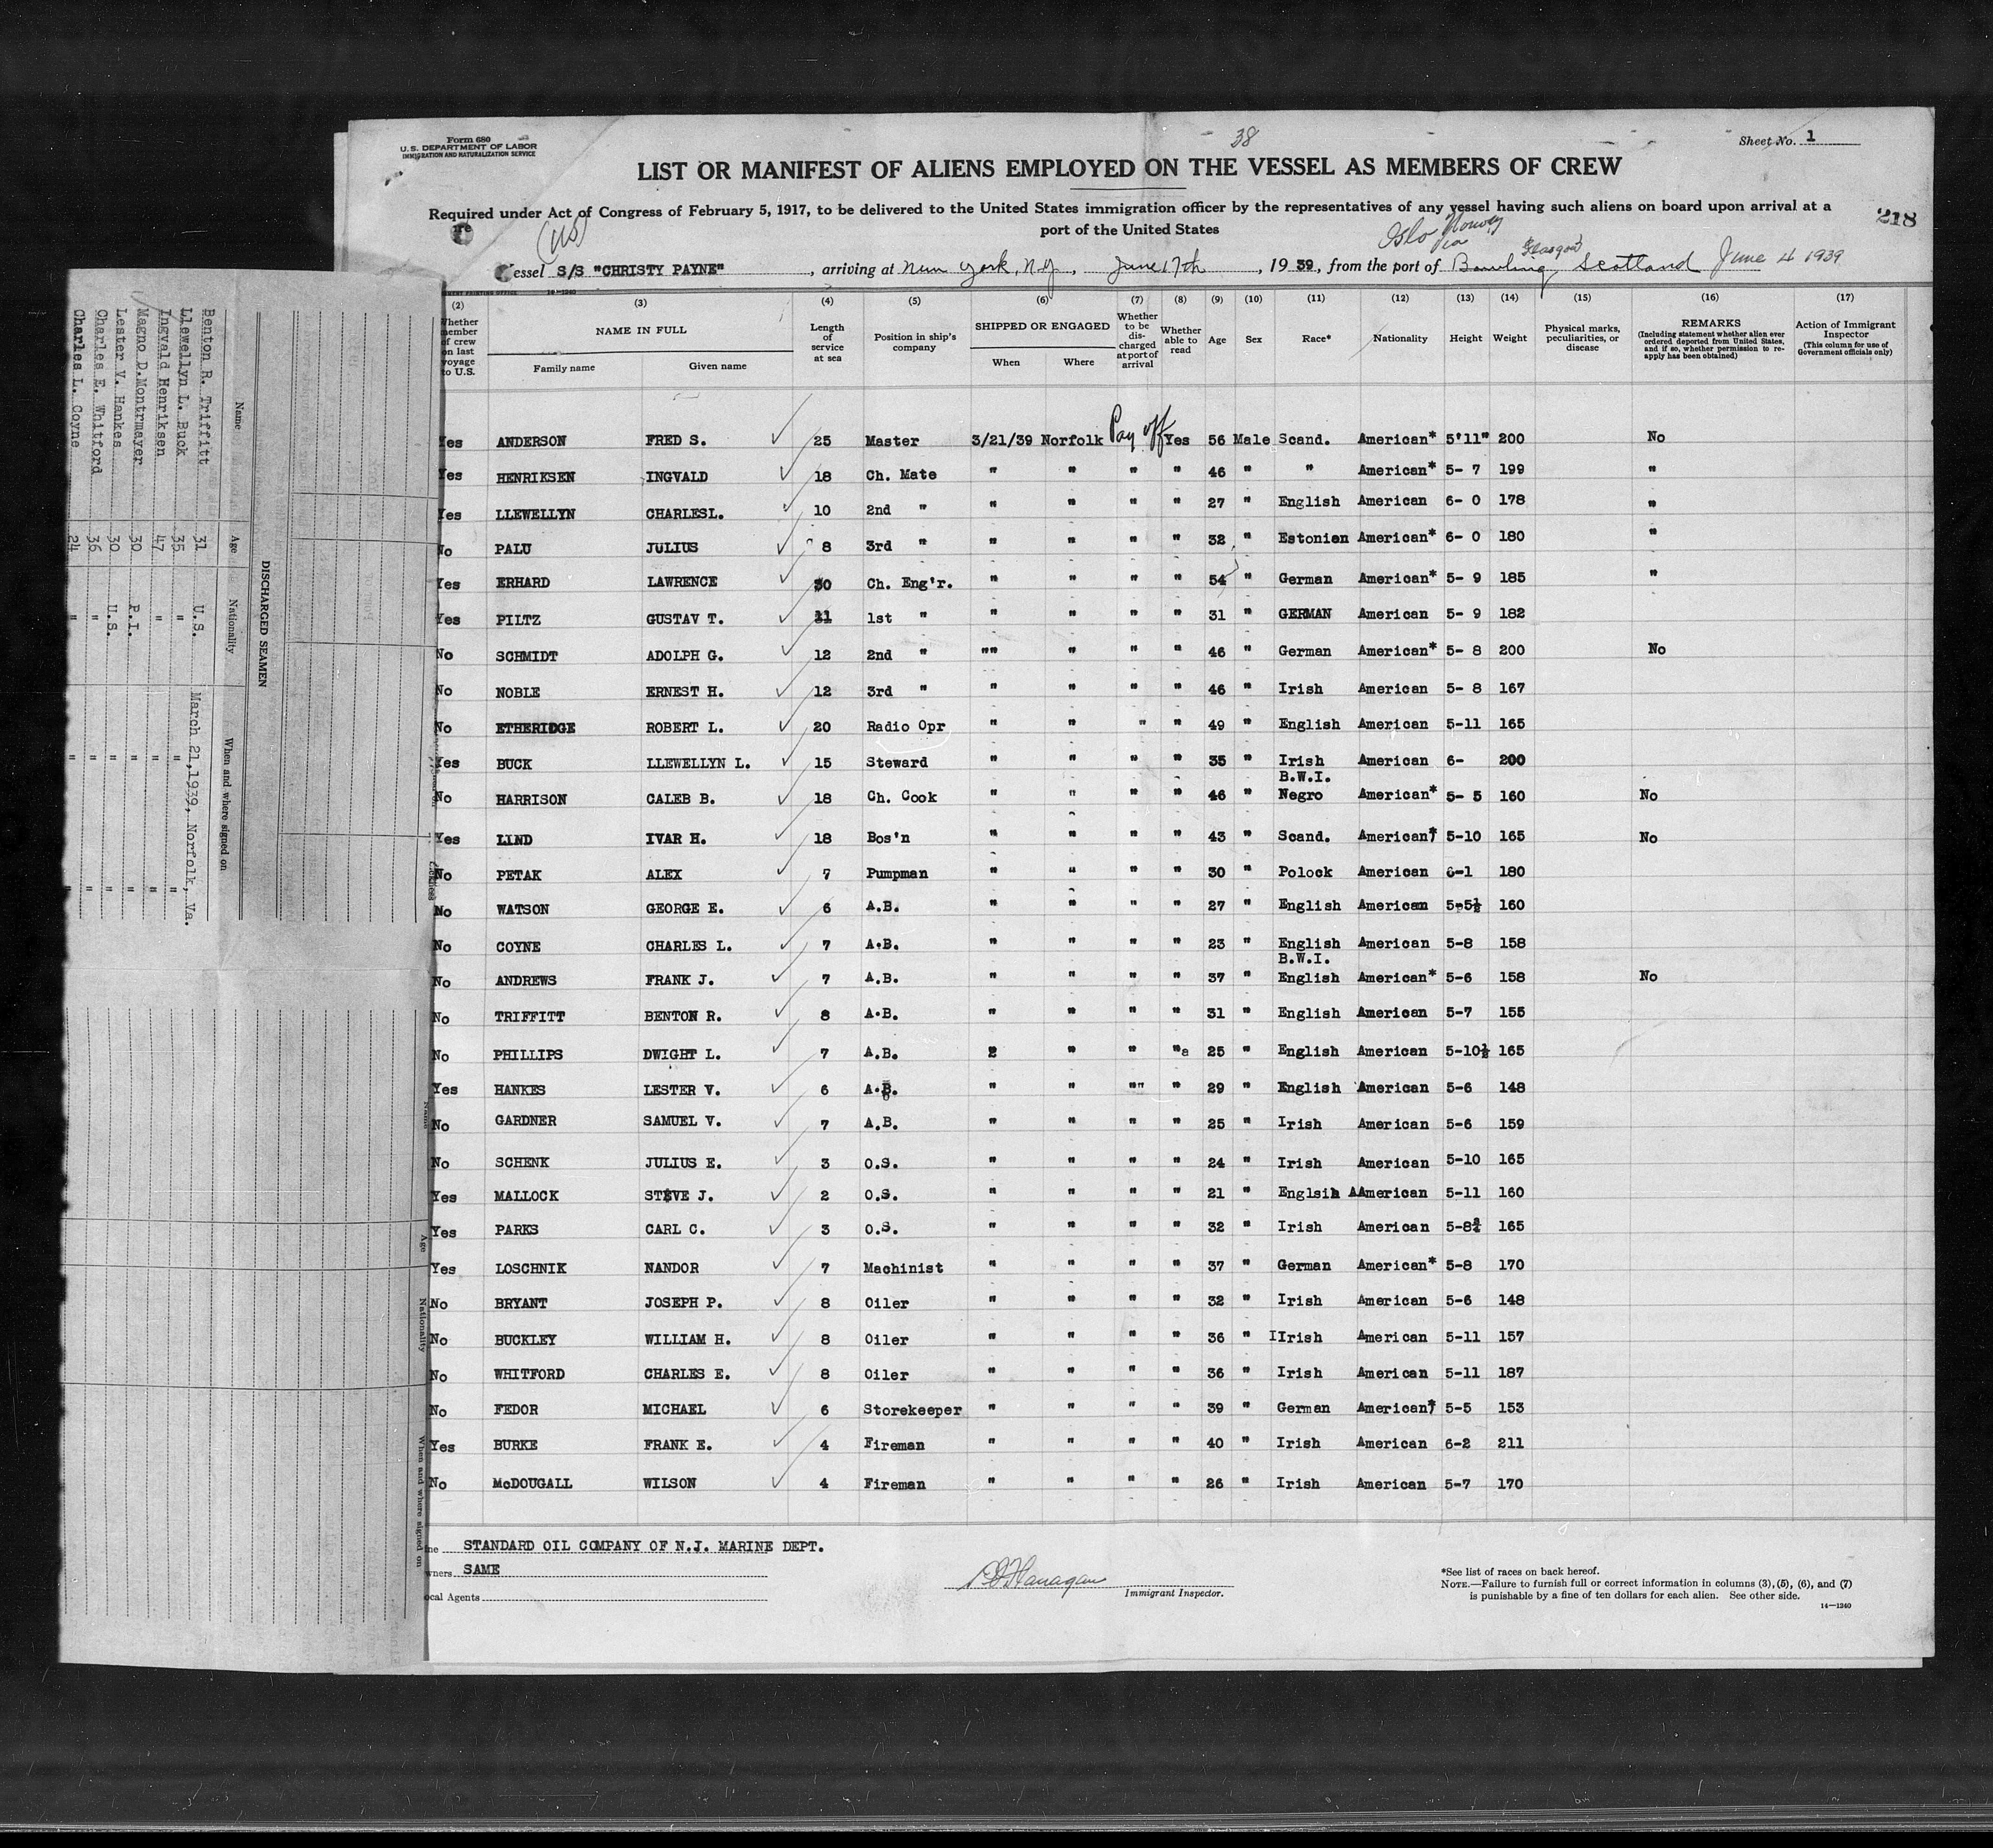 Form 680
U.S. DEPARTMENT OF LABOR
IMMIGRATION AND NATURALIZATION SERVICE
38
Sheet No. 1
LIST OR MANIFEST OF ALIENS EMPLOYED ON THE VESSEL AS MEMBERS OF CREW
Required under Act of Congress of February 5, 1917, to be delivered to the United States immigration officer by the representatives of any vessel having such aliens on board upon arrival at a
port of the United States
218
(US)
Oslo Norway
via
Glasgow
essel S/S "CHRISTY PAYNE", arriving at New York, N.Y., June 17th, 1939, from the port of Bowling, Scotland June 4 1939
(2) (3) (4) (5) (6) (7) (8) (9) (10) (11) (12) (13) (14) (15) (16) (17)
Whether member of crew on last voyage to U.S. NAME IN FULL Family name Given name Length of service at sea Position in ship's company SHIPPED OR ENGAGED When Where Whether to be discharged at port of arrival Whether able to read Age Sex Race* Nationality Height Weight Physical marks, peculiarities, or disease REMARKS (Including statement whether alien ever ordered deported from United States, and if so, whether permission to reapply has been obtained) Action of Immigrant Inspector (This column for use of Government officials only)
Yes ANDERSON FRED S. 25 Master 3/21/39 Norfolk Pay off Yes 56 Male Scand. American* 5'11" 200 No
Yes HENRIKSEN INGVALD 18 Ch. Mate " " " " 46 " " American* 5- 7 199 "
Yes LLEWELLYN CHARLESL. 10 2nd " " " " " 27 " English American 6- 0 178 "
No PALU JULIUS 8 3rd " " " " " 32 " Estonien American* 6- 0 180 "
Yes ERHARD LAWRENCE 30 Ch. Eng'r. " " " " 54 " German American* 5- 9 185 "
Yes PILTZ GUSTAV T. 11 1st " " " " " 31 " GERMAN American 5- 9 182
No SCHMIDT ADOLPH G. 12 2nd " "" " " " 46 " German American* 5- 8 200 No
No NOBLE ERNEST H. 12 3rd " " " " " 46 " Irish American 5- 8 167
No ETHERIDGE ROBERT L. 20 Radio Opr " " " " 49 " English American 5-11 165
Yes BUCK LLEWELLYN L. 15 Steward " " " " 35 " Irish American 6- 200
B.W.I.
No HARRISON CALEB B. 18 Ch. Cook " " " " 46 " Negro American* 5- 5 160 No
Yes LIND IVAR H. 18 Bos'n " " " " 43 " Scand. American* 5-10 165 No
No PETAK ALEX 7 Pumpman " " " " 30 " Polock American 6-1 180
No WATSON GEORGE E. 6 A.B. " " " " 27 " English American 5-5½ 160
No COYNE CHARLES L. 7 A.B. " " " " 23 " English American 5-8 158
B.W.I.
No ANDREWS FRANK J. 7 A.B. " " " " 37 " English American* 5-6 158 No
No TRIFFITT BENTON R. 8 A.B. " " " " 31 " English American 5-7 155
No PHILLIPS DWIGHT L. 7 A.B. 2 " " "a 25 " English American 5-10½ 165
Yes HANKES LESTER V. 6 A.B. " " "" " 29 " English American 5-6 148
No GARDNER SAMUEL V. 7 A.B. " " " " 25 " Irish American 5-6 159
No SCHENK JULIUS E. 3 O.S. " " " " 24 " Irish American 5-10 165
Yes MALLOCK STEVE J. 2 O.S. " " " " 21 " Englsih AAmerican 5-11 160
Yes PARKS CARL C. 3 O.S. " " " " 32 " Irish American 5-8¾ 165
Yes LOSCHNIK NANDOR 7 Machinist " " " " 37 " German American* 5-8 170
No BRYANT JOSEPH P. 8 Oiler " " " " 32 " Irish American 5-6 148
No BUCKLEY WILLIAM H. 8 Oiler " " " " 36 " IIrish American 5-11 157
No WHITFORD CHARLES E. 8 Oiler " " " " 36 " Irish American 5-11 187
No FEDOR MICHAEL 6 Storekeeper " " " " 39 " German American* 5-5 153
Yes BURKE FRANK E. 4 Fireman " " " " 40 " Irish American 6-2 211
No McDOUGALL WILSON 4 Fireman " " " " 26 " Irish American 5-7 170
ne STANDARD OIL COMPANY OF N.J. MARINE DEPT.
wners SAME
ocal Agents
Flanagan
Immigrant Inspector.
*See list of races on back hereof.
NOTE.—Failure to furnish full or correct information in columns (3), (5), (6), and (7)
is punishable by a fine of ten dollars for each alien. See other side.
14—1240
DISCHARGED SEAMEN
Name Age Nationality When and where signed on
Benton R. Triffitt 31 U.S. March 21,1939, Norfolk, Va.
Llewellyn L. Buck 35 " " "
Ingvald Henriksen 47 " " "
Magno D.Montrmayer 30 P.I. " "
Lester V. Hankes 30 U.S. " "
Charles E. Whitford 36 " " "
Charles L. Coyne 24 " " "
Age
Nationality
When and where signed on